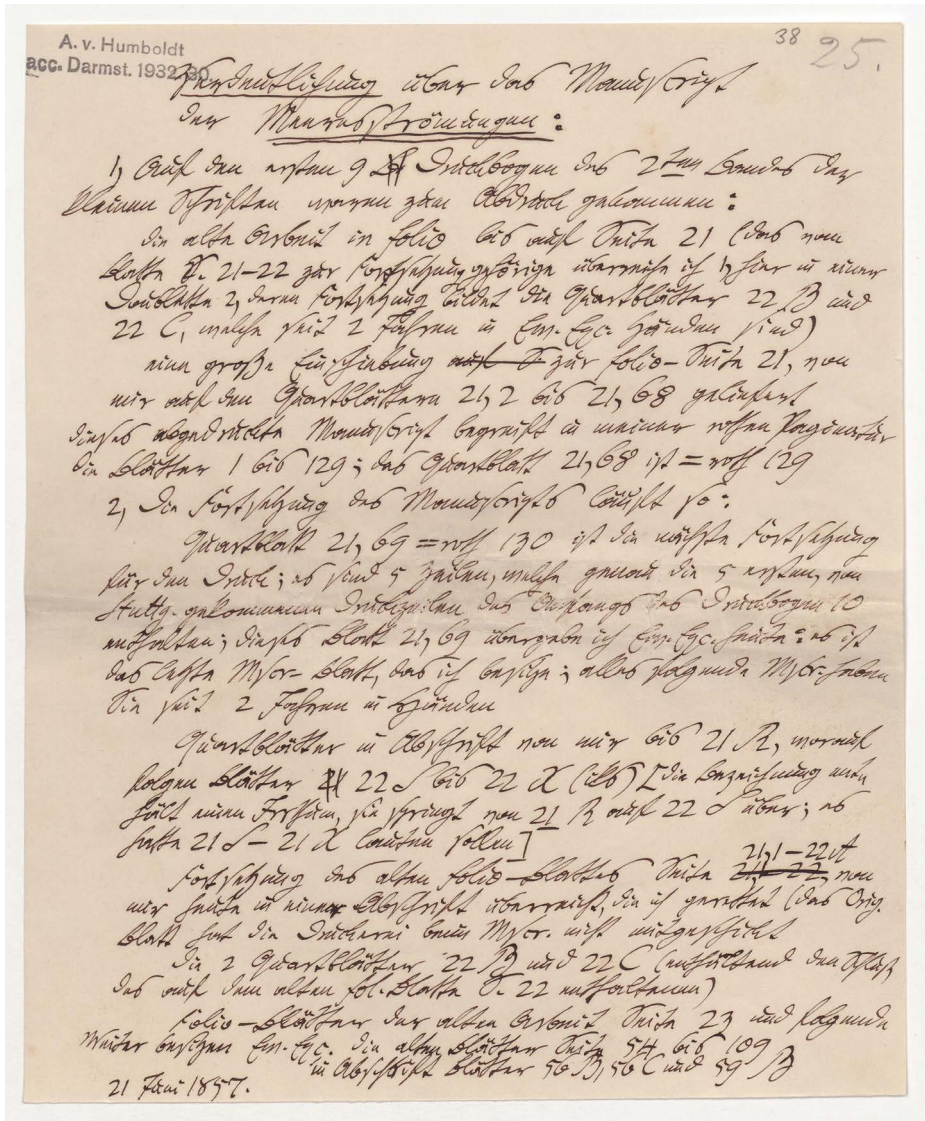 A. v. Humboldt
acc. Darmst. 1932.30
38 25.
Verdeutlichung über das Manuscript
der Meeresströmungen:
1, Auf den ersten 9 Druckbogen des 2ten Bandes der
kleinen Schriften waren zum Abdruck gekommen:
die alte Arbeit in folio bis auf Seite 21 (das vom
Blatte S. 21-22 zur Fortsetzung gehörige überreiche ich 1, hier in einer
Doublette 2, deren Fortsetzung bildet die Quartblätter 22 B und
22 C, welche seit 2 Jahren in Ew. Exc. Händen sind)
eine große Einschiebung auf S zur folio-Seite 21, von
mir auf den Quartblättern 21,2 bis 21,68 geliefert
dieses abgedruckte Manuscript begreift in meiner rothen Paginatur
die Blätter 1 bis 129; das Quartblatt 21,68 ist = roth 129
2, Die Fortsetzung des Manuscripts läuft so:
Quartblatt 21,69 = roth 130 ist die nächste Fortsetzung
für den Druck; es sind 5 Zeilen, welche genau die 5 ersten, von
Stuttg. gekommenen Druckzeilen des Anfangs des Druckbogen 10
enthalten; dieses Blatt 21,69 übergebe ich Ew. Exc. heute: es ist
das letzte Mscr-Blatt, das ich besitze; alles folgende Mscr. haben
Sie seit 2 Jahren in Händen
Quartblätter in Abschrift von mir bis 21 R, worauf
folgen Blätter 22 S bis 22 X [die Bezeichnung ent-
hält einen Irrthum, sie springt von 21 R auf 22 S über; es
hätte 21 S - 21 X lauten sollen]
21,1-22 A
Fortsetzung des alten folio-Blattes Seite 21,1-22, von
mir heute in einer Abschrift überreicht, die ich gerettet (das Orig.
Blatt hat die Druckerei beim Mscr. nicht mitgeschickt
die 2 Quartblätter 22 B und 22 C (enthaltend den Schluß
des auf dem alten fol.-Blatte S. 22 enthaltenen)
Folio-Blätter der alten Arbeit Seite 23 und folgende
Weiter besitzen Ew. Exc. die alten Blätter Seite 54 bis 109
in Abschrift Blätter 56 B, 56 C und 59 B
21 Juni 1857.